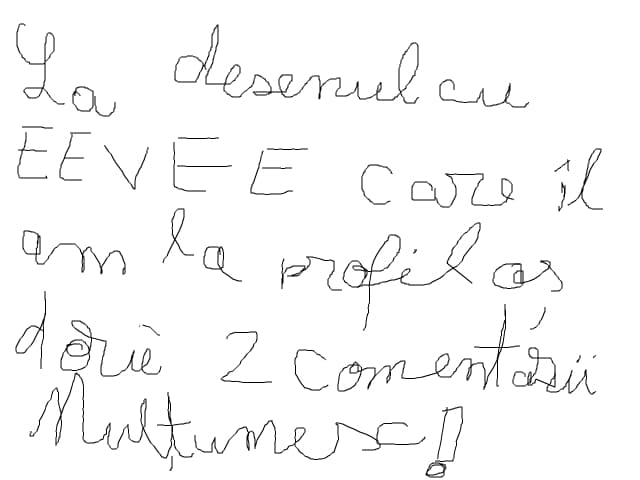 La desenul cu
EEVEE care îl
am la profil as
doriè 2 comentárii
Mulțumesc!